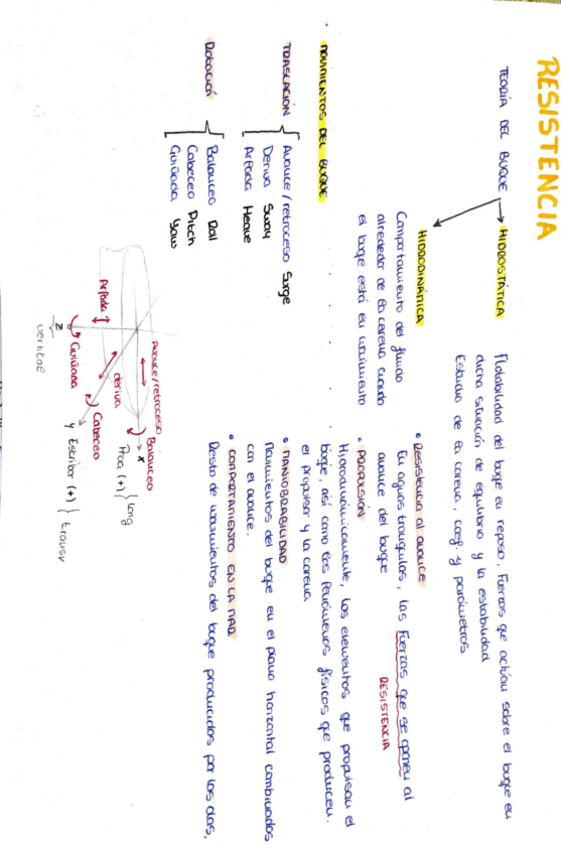 RESISTENCIA
TEORÍA DEL BUQUE
HIDROSTÁTICA
Flotabilidad del buque en reposo, Fuerzas que actúan sobre el buque en
dicha situación de equilibrio y la estabilidad
Estudio de la carena, coef. y parámetros
HIDRODINÁMICA
Comportamiento del fluido
alrededor de la carena cuando
el buque está en movimiento
• Resistencia al avance
En aguas tranquilas, las fuerzas que se oponen al
avance del buque
RESISTENCIA
• PROPULSIÓN
Hidrodinámicamente, los elementos que propulsan el
buque, así como los fenómenos físicos que producen.
el propulsor y la carena
• MANIOBRABILIDAD
Movimientos del buque en el plano horizontal combinados
con el avance.
• COMPORTAMIENTO EN LA MAR
Resto de movimientos del buque producidos por las olas,
MOVIMIENTOS DEL BUQUE
TRASLACIÓN
Avance/retroceso Surge
Deriva Sway
Arfada Heave
Rotación
Balanceo Rol
Cabeceo Pitch
Guiñada Yaw
Avance/retroceso
Balanceo
x
Proa (+) } long
deriva
Arfada
Cabeceo
y Estribor (+) } transv
Guiñada
z
vertical